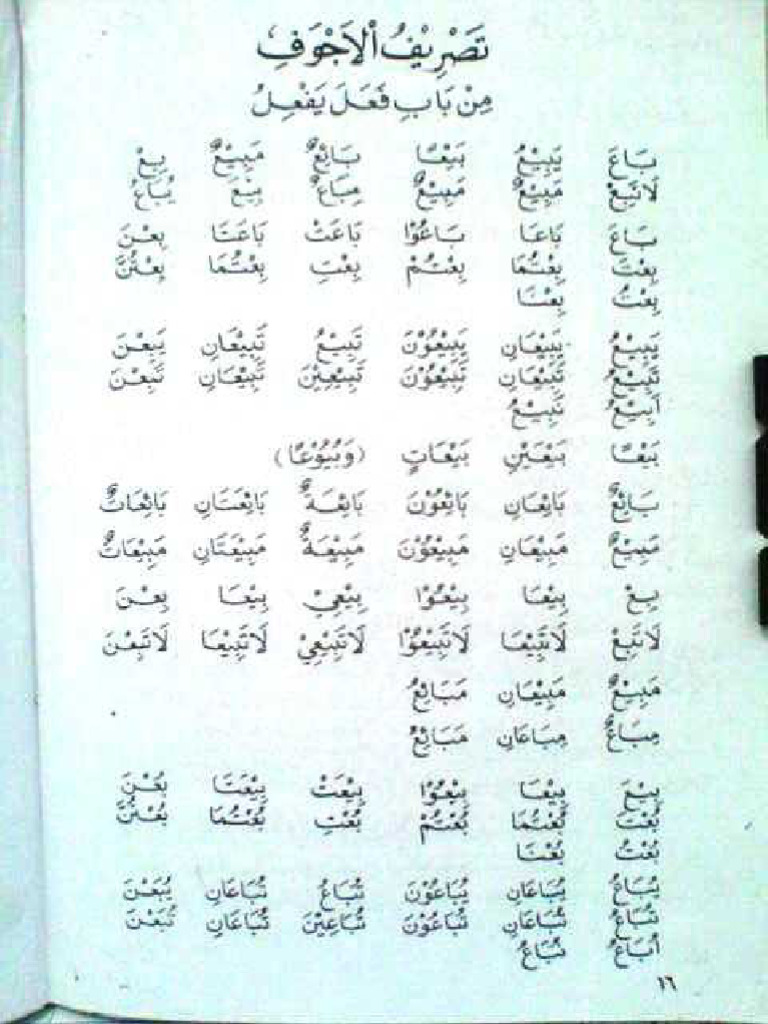 تَصْرِيْفُ اْلاَجْوَفِ
مِنْ بَابِ فَعَلَ يَفْعِلُ
بَاعَ يَبِيْعُ بَيْعًا بَائِعٌ مَبِيْعٌ بِعْ
لَاتَبِعْ مَبِيْعٌ مَبِيْعٌ مِبَاعٌ بِيْعَ يُبَاعُ
بَاعَ بَاعَا بَاعُوْا بَاعَتْ بَاعَتَا بِعْنَ
بِعْتَ بِعْتُمَا بِعْتُمْ بِعْتِ بِعْتُمَا بِعْتُنَّ
بِعْتُ بِعْنَا
يَبِيْعُ يَبِيْعَانِ يَبِيْعُوْنَ تَبِيْعُ تَبِيْعَانِ يَبِعْنَ
تَبِيْعُ تَبِيْعَانِ تَبِيْعُوْنَ تَبِيْعِيْنَ تَبِيْعَانِ تَبِعْنَ
اَبِيْعُ نَبِيْعُ
بَيْعًا بَيْعَيْنِ بَيْعَاتٍ (وَبُيُوْعًا)
بَائِعٌ بَائِعَانِ بَائِعُوْنَ بَائِعَةٌ بَائِعَتَانِ بَائِعَاتٌ
مَبِيْعٌ مَبِيْعَانِ مَبِيْعُوْنَ مَبِيْعَةٌ مَبِيْعَتَانِ مَبِيْعَاتٌ
بِعْ بِيْعَا بِيْعُوْا بِيْعِيْ بِيْعَا بِعْنَ
لَاتَبِعْ لَاتَبِيْعَا لَاتَبِيْعُوْا لَاتَبِيْعِيْ لَاتَبِيْعَا لَاتَبِعْنَ
مَبِيْعٌ مَبِيْعَانِ مَبَائِعُ
مِبَاعٌ مِبَاعَانِ مَبَائِعُ
بِيْعَ بِيْعَا بِيْعُوْا بِيْعَتْ بِيْعَتَا بُعْنَ
بُعْتَ بُعْتُمَا بُعْتُمْ بُعْتِ بُعْتُمَا بُعْتُنَّ
بُعْتُ بُعْنَا
يُبَاعُ يُبَاعَانِ يُبَاعُوْنَ تُبَاعُ تُبَاعَانِ يُبَعْنَ
تُبَاعُ تُبَاعَانِ تُبَاعُوْنَ تُبَاعِيْنَ تُبَاعَانِ تُبَعْنَ
اُبَاعُ نُبَاعُ
١٦